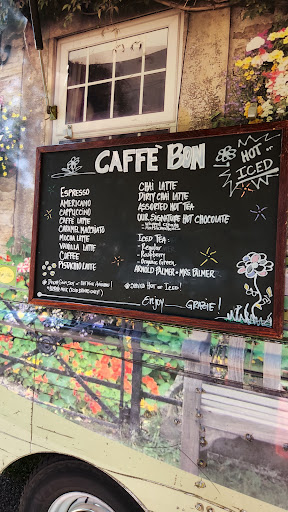 CAFFÈ BON
HOT or ICED
ESPRESSO
AMERICANO
CAPPUCCINO
CAFFE LATTE
CARAMEL MACCHIATO
MOCHA LATTE
VANILLA LATTE
COFFEE
PISTACHIO LATTE
CHAI LATTE
DIRTY CHAI LATTE
ASSORTED HOT TEA
OUR SIGNATURE HOT CHOCOLATE
ICED TEA:
- Regular
- Raspberry
- Organic Green
ARNOLD PALMER • MRS. PALMER
HOT or ICED!
Enjoy
GRAZIE!